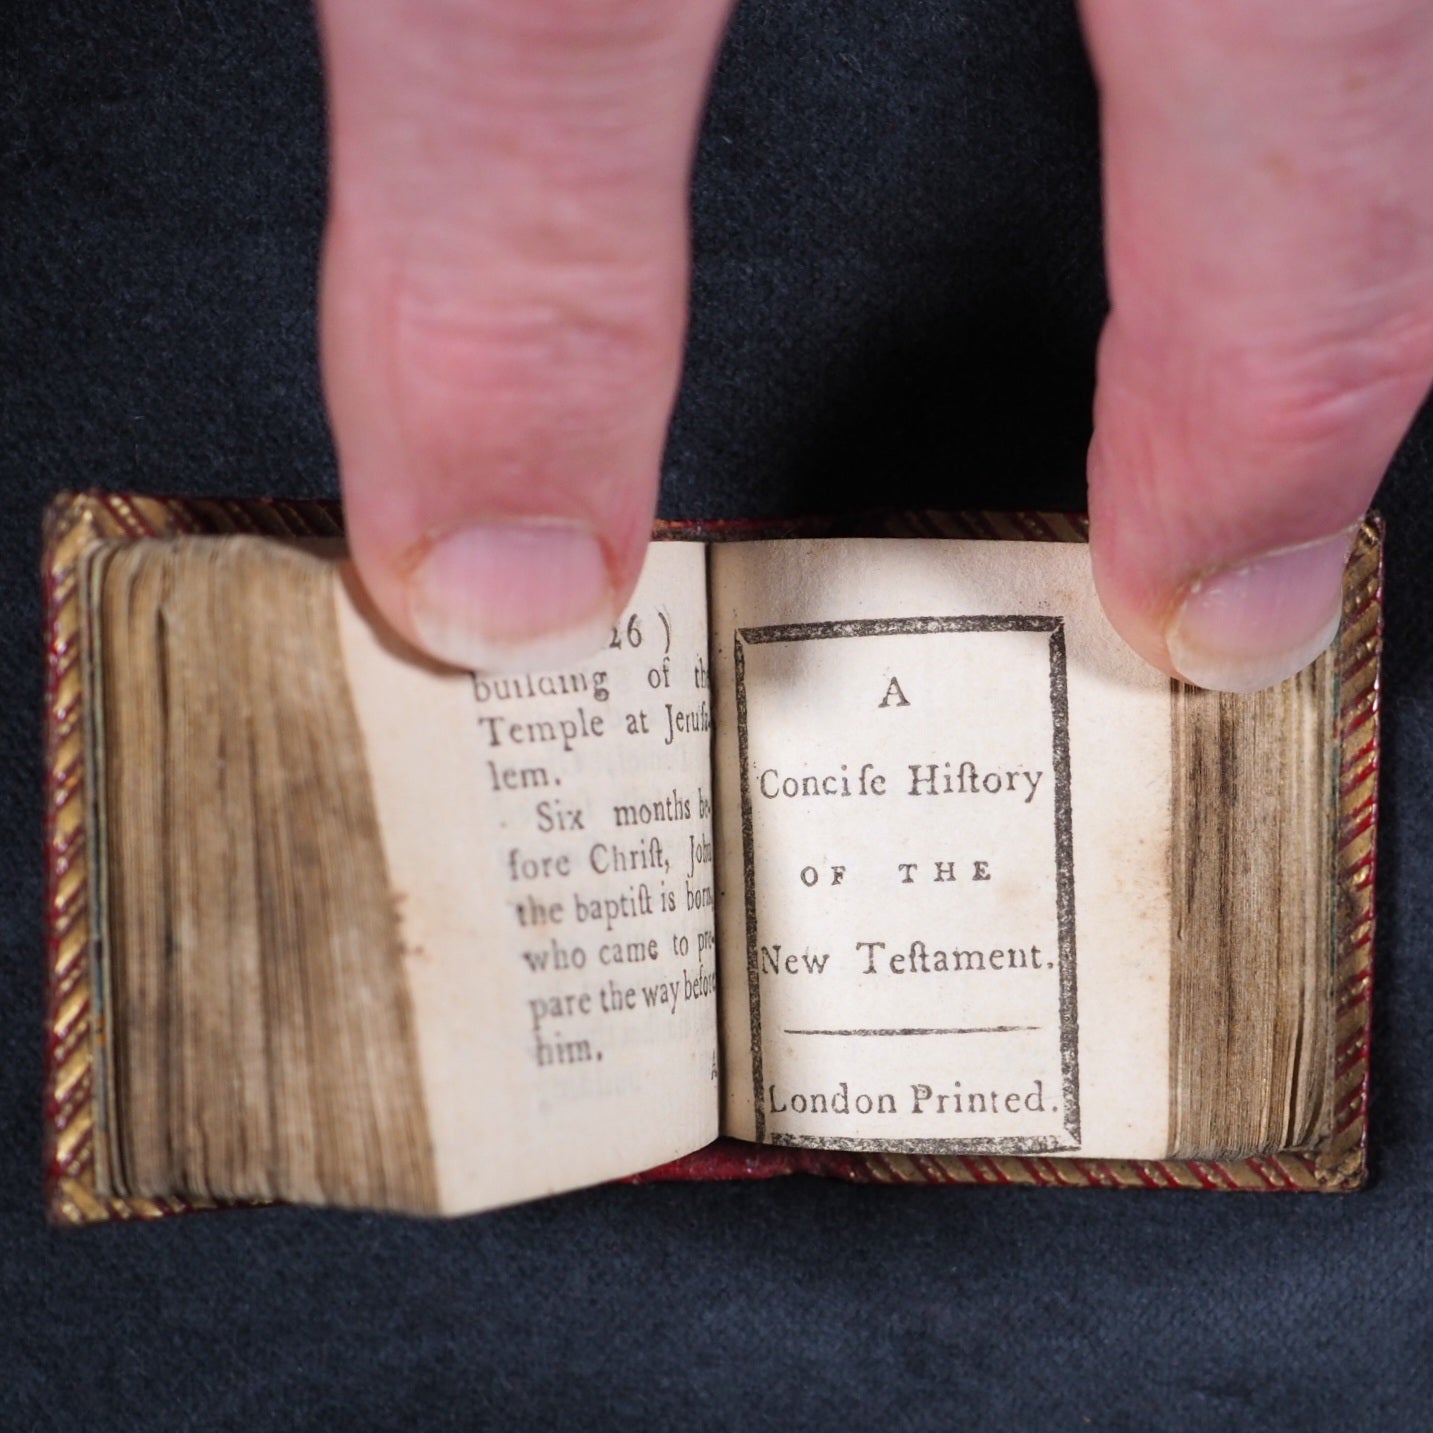 26 )
building of
Temple at
lem.
Six months
fore Chriſt,
the baptiſt is
who came to
pare the way
him.
A
Conciſe Hiſtory
OF THE
New Teſtament.
London Printed.